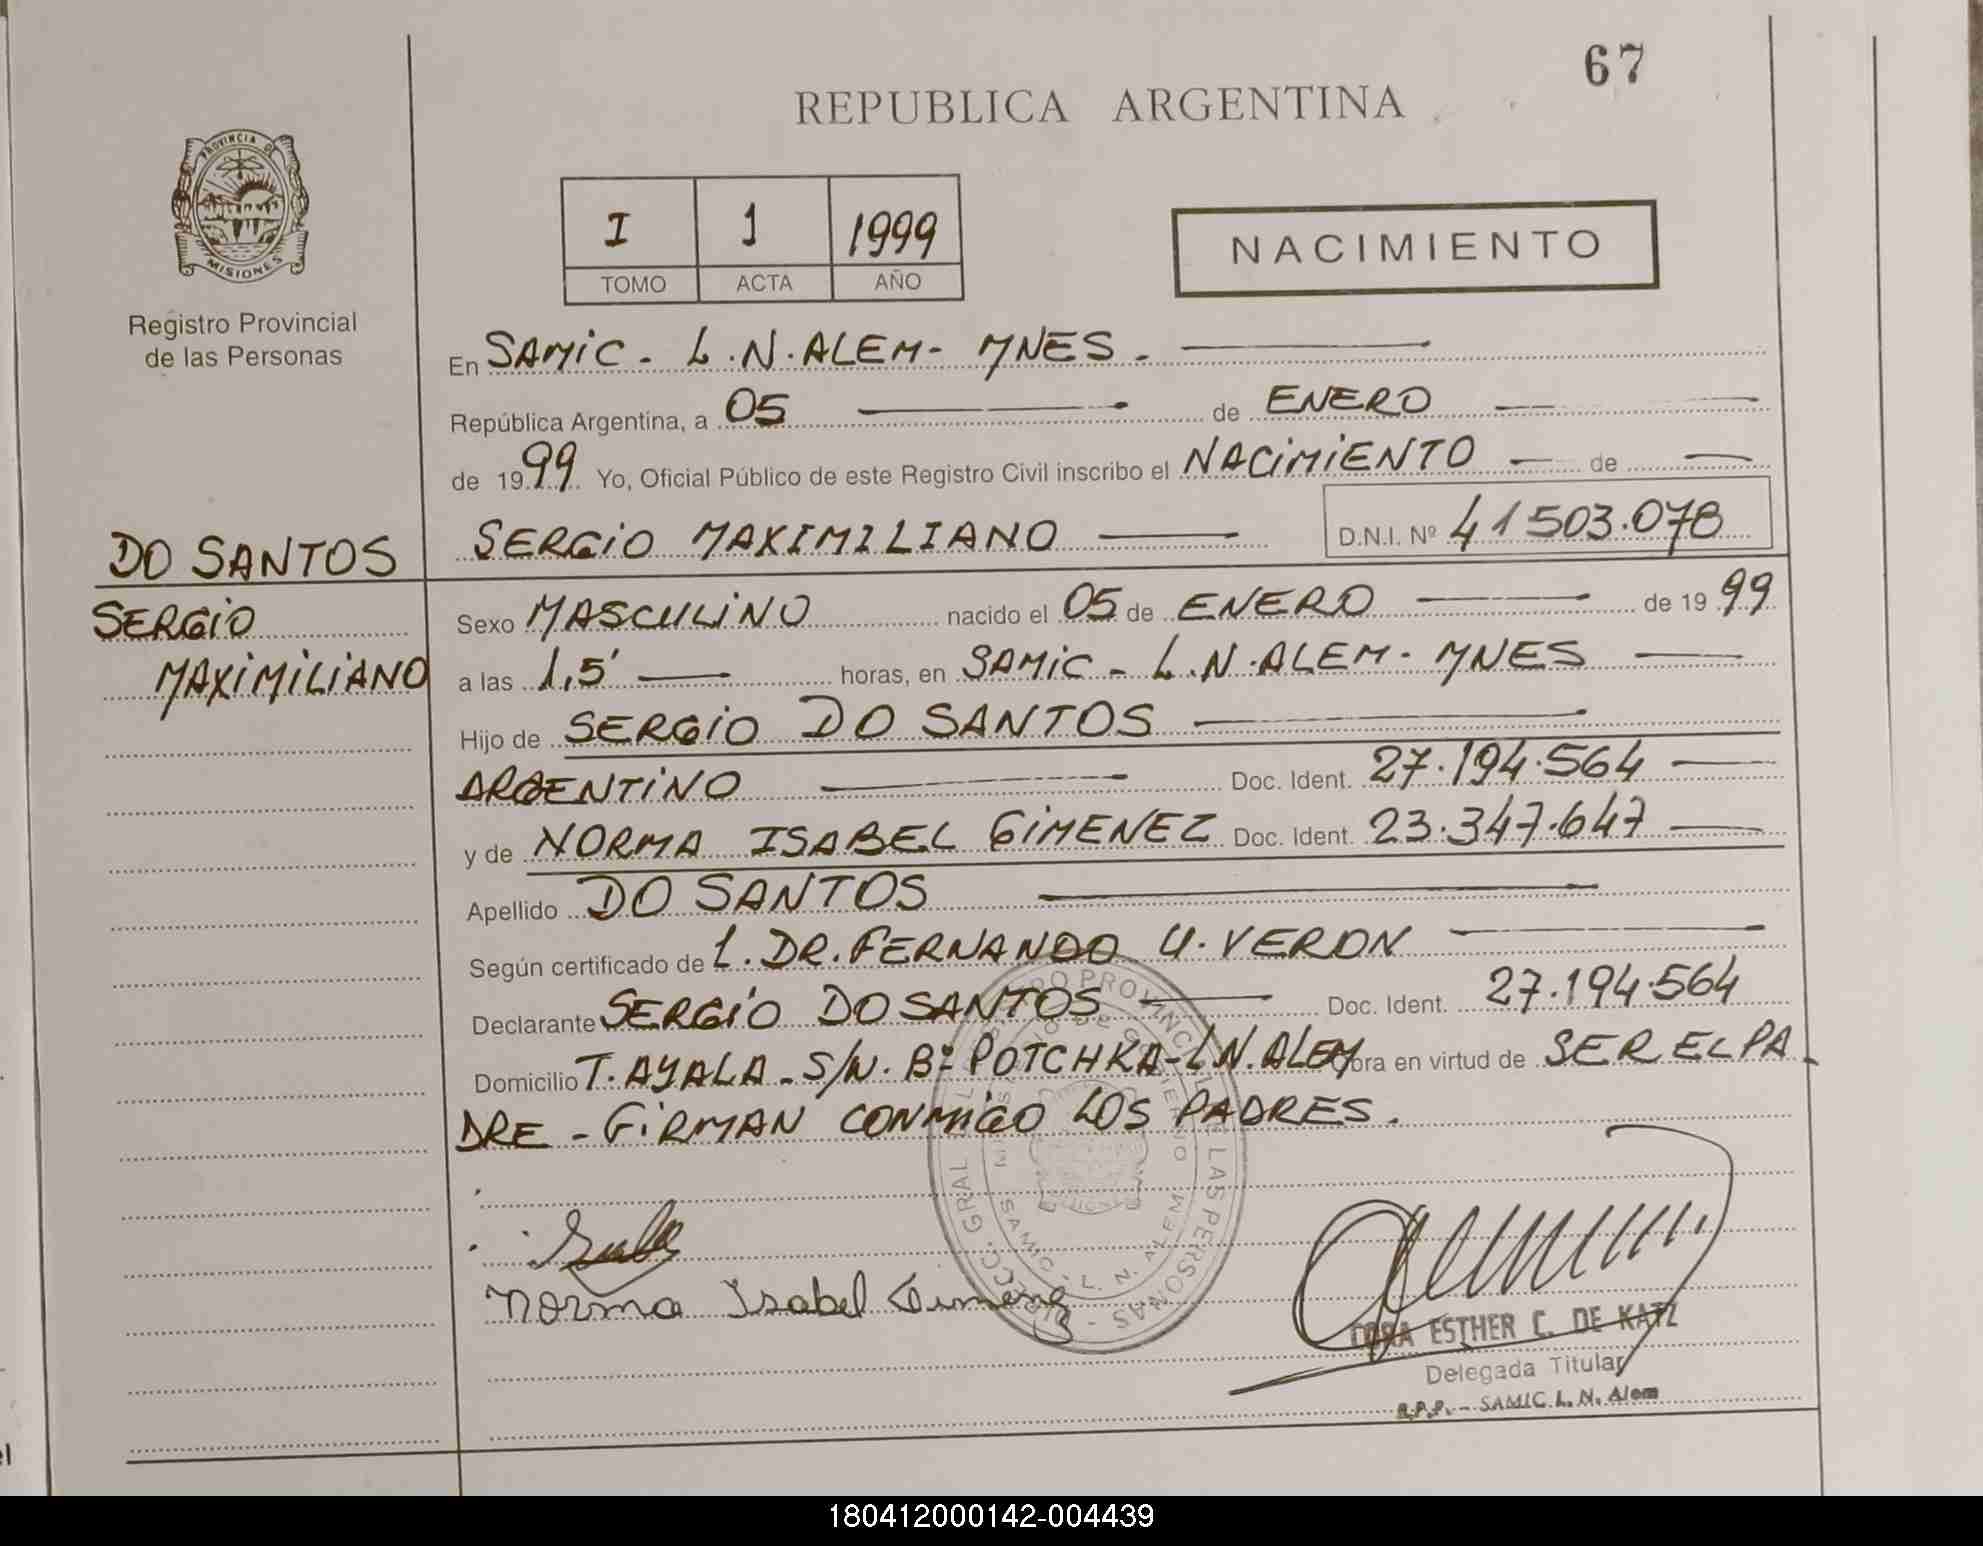 67
REPUBLICA ARGENTINA
PROVINCIA DE
MISIONES
Registro Provincial
de las Personas
I 1 1999
TOMO ACTA AÑO
NACIMIENTO
En SAMIC - L.N. ALEM - MNES -
República Argentina, a 05 de ENERO
de 1999 Yo, Oficial Público de este Registro Civil inscribo el NACIMIENTO de
DO SANTOS
SERGIO MAXIMILIANO D.N.I. Nº 41503.078
SERGIO
MAXIMILIANO
Sexo MASCULINO nacido el 05 de ENERO de 1999
a las 1,5' horas, en SAMIC - L.N. ALEM - MNES
Hijo de SERGIO DO SANTOS
ARGENTINO Doc. Ident. 27.194.564
y de NORMA ISABEL GIMENEZ Doc. Ident. 23.347.647
Apellido DO SANTOS
Según certificado de DR. FERNANDO U. VERON
Declarante SERGIO DO SANTOS Doc. Ident. 27.194.564
Domicilio T. AYALA - S/N. Bº POTCHKA - L.N. ALEM obra en virtud de SER EL PA
DRE - FIRMAN CONMIGO LOS PADRES.
Norma Isabel Gimenez
DORA ESTHER C. DE KATZ
Delegada Titular
R.P.P. - SAMIC L. N. Alem
180412000142-004439